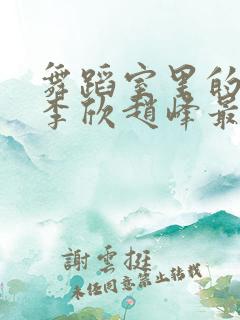 舞蹈室里的
李欣赵峰最
謝雲挺
未经同意禁止转载